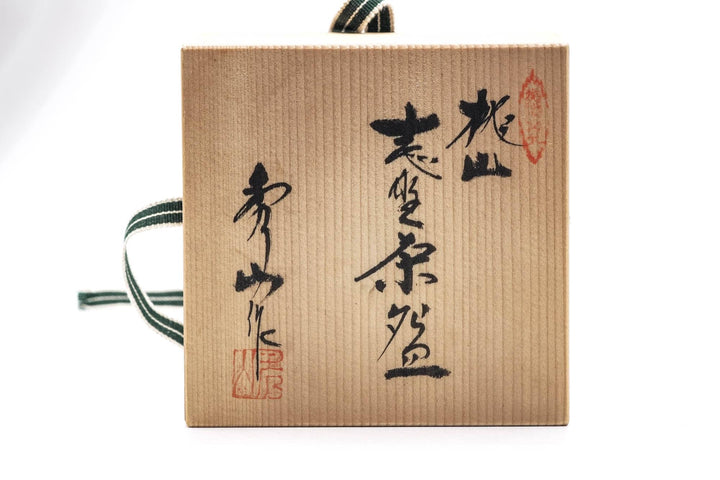 桃山
志野茶盌
秀山作